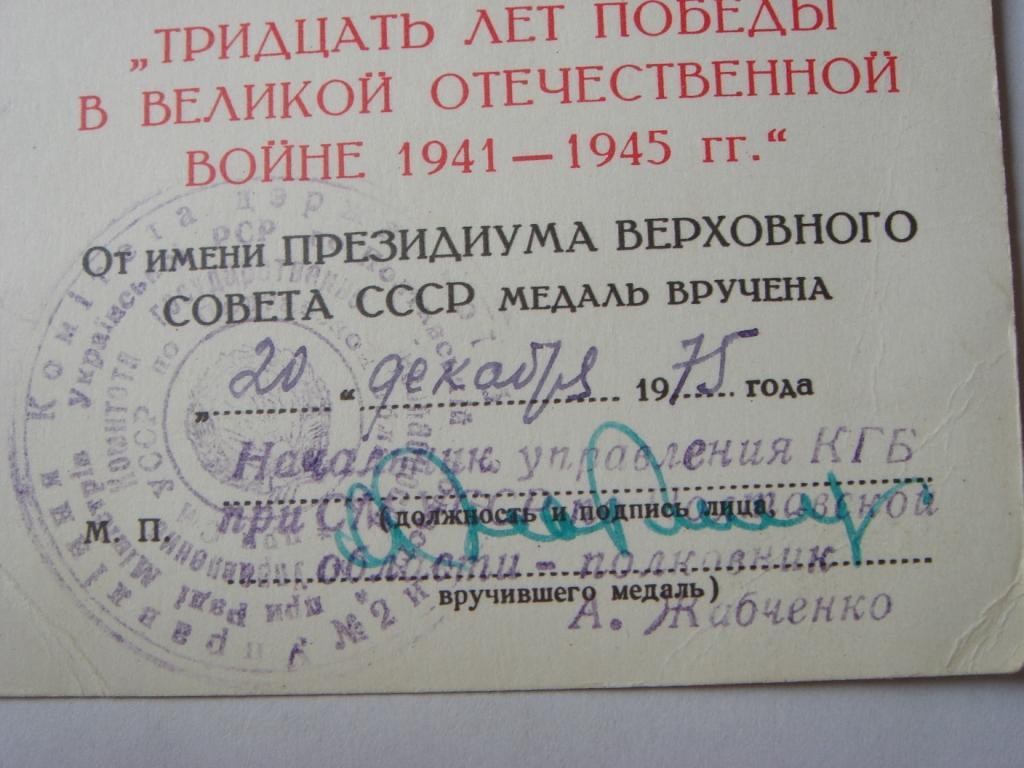 „ТРИДЦАТЬ ЛЕТ ПОБЕДЫ
В ВЕЛИКОЙ ОТЕЧЕСТВЕННОЙ
ВОЙНЕ 1941 — 1945 гг.“
От имени ПРЕЗИДИУМА ВЕРХОВНОГО
СОВЕТА СССР МЕДАЛЬ ВРУЧЕНА
„ 20 “ декабря 1975 года
Начальник управления КГБ
при Полтавской
М. П. (должность и подпись лица,
области - полковник
вручившего медаль)
А. Жабченко
Комітета держ
РСР
УССР по
при Раді Міністрів Української
Управління
№ 2